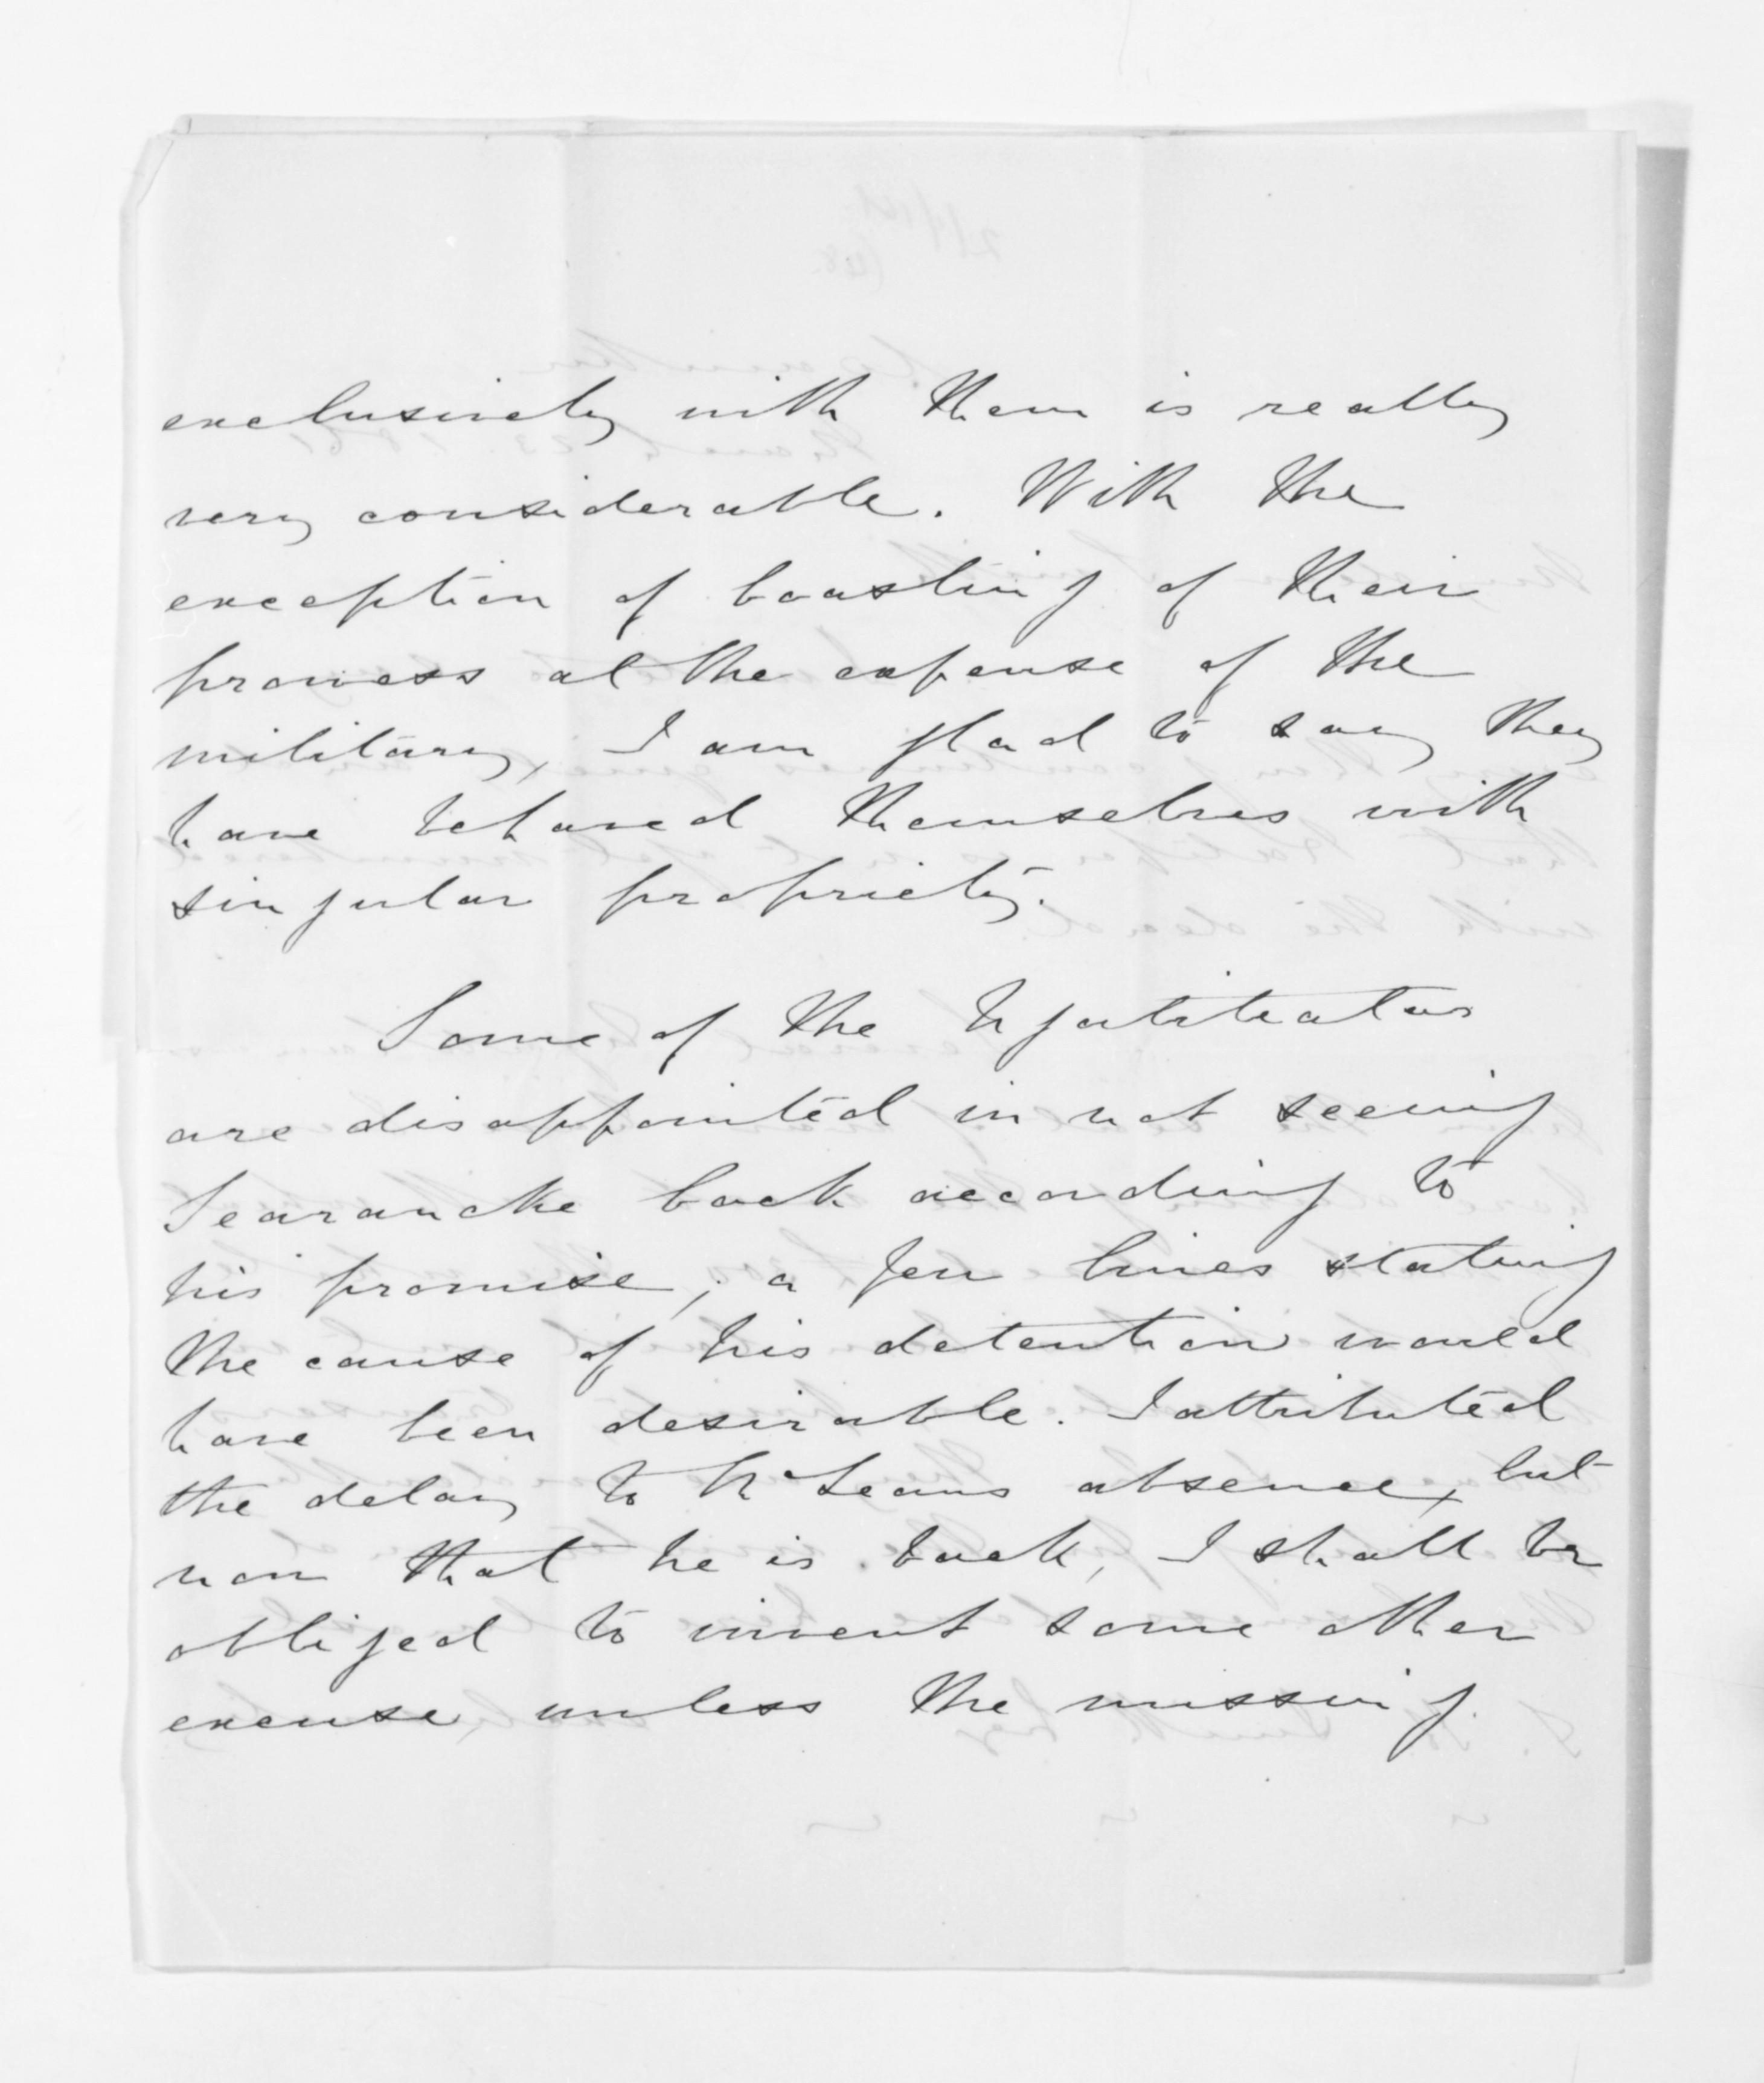 exclusively with them is really
very considerable. With the
exception of boasting of their
prowess at the expense of the
military, I am glad to say they
have behaved themselves with
singular propriety.
Some of the Ngatiteatas
are disappointed in not seeing
Searancke back according to
his promise; a few lines stating
the cause of his detention would
have been desirable. I attributed
the delay to McLeans absence, but
now that he is back, I shall be
obliged to invent some other
excuse, unless the missing